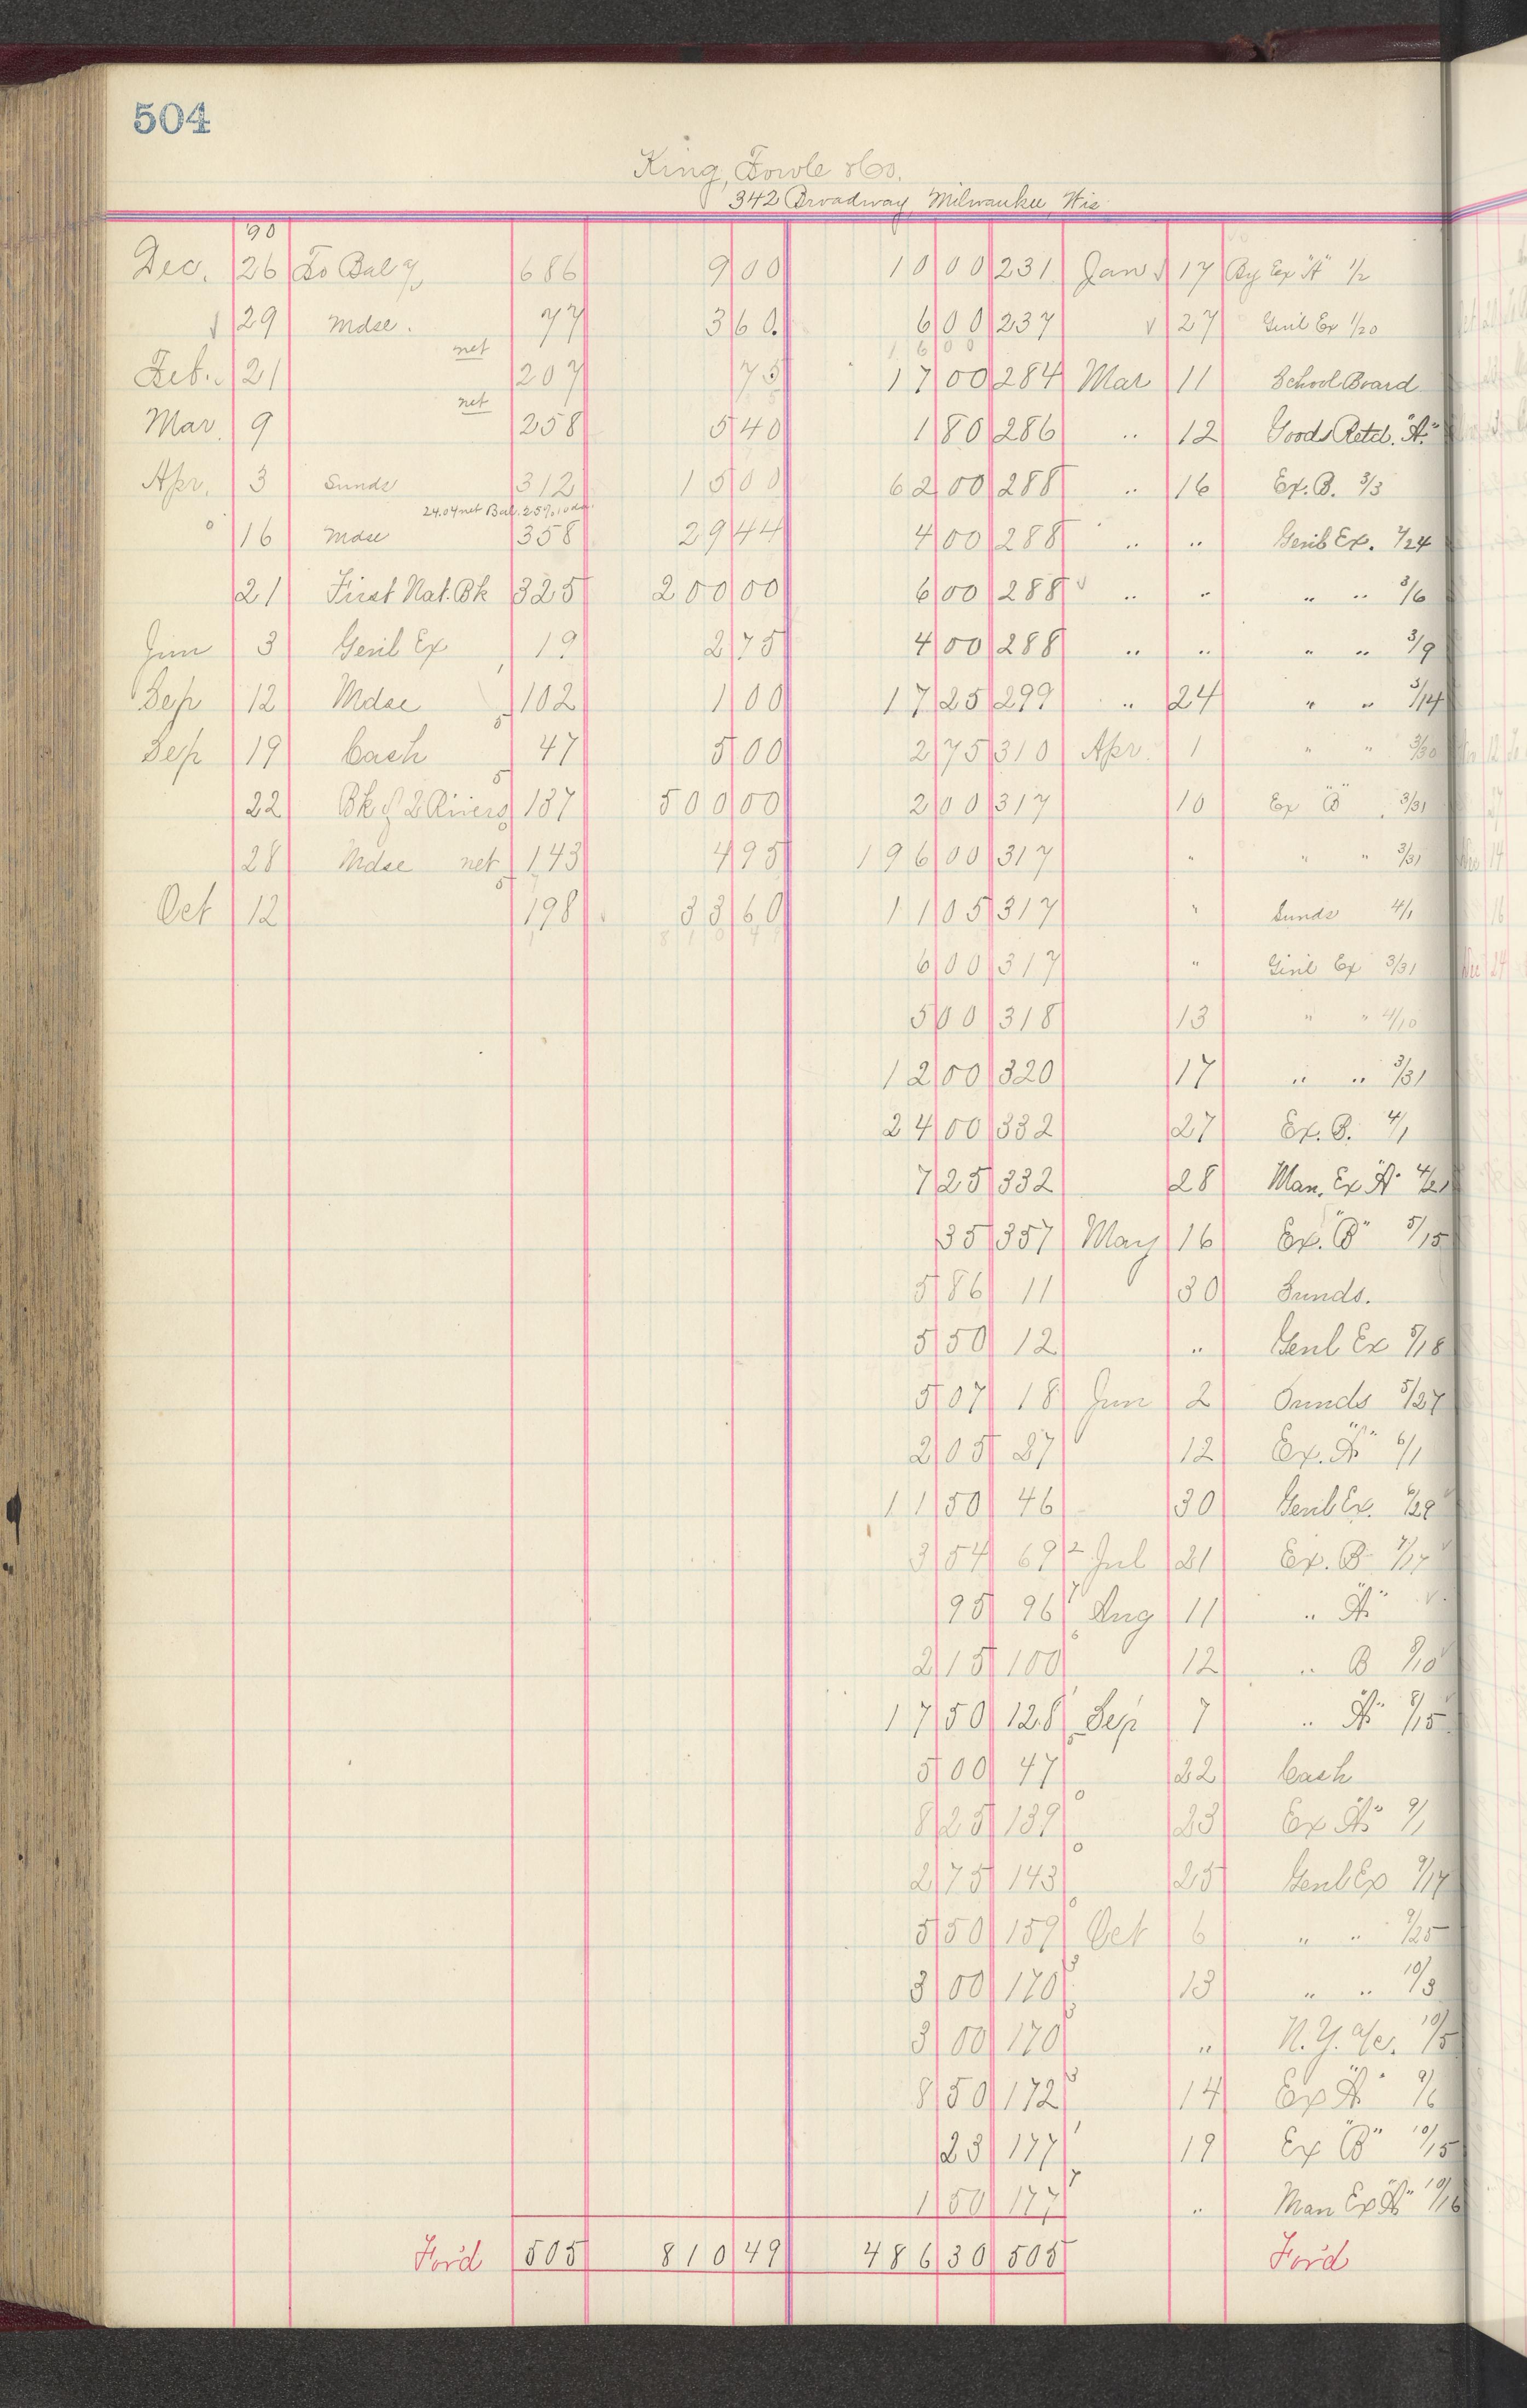 504
King, Fowle & Co.
342 Broadway, Milwaukee, Wis
90
Dec. 26 To Bal 686 9 00 10 00 231 Jan 17 By Ex "A" 1/2
√ 29 Mdse. 77 3 60 6 00 237 √ 27 Genl Ex 1/20
1 6 0 0
Feb. 21 net 207 75 17 00 284 Mar 11 School Board
Mar. 9 net 258 5 40 1 80 286 " 12 Goods Retd. "A"
Apr. 3 Sunds 312 15 00 62 00 288 " 16 Ex. B. 3/3
24.04 net Bal. 25% 10 da.
16 Mdse 358 29 44 4 00 288 " " Genl Ex. 2/24
21 First Nat. Bk 325 200 00 6 00 288 √ " " " " 3/6
Jun 3 Genl Ex 19 2 75 4 00 288 " " " " 3/9
Sep 12 Mdse 102 1 00 17 25 299 " 24 " " 3/14
Sep 19 Cash 47 5 00 2 75 310 Apr. 1 " " 3/30
22 Bk of 2 Rivers 137 500 00 2 00 317 10 Ex "B" 3/31
28 Mdse net 143 4 95 196 00 317 " " " 3/31
Oct 12 198 33 60 11 05 317 " Sunds 4/1
8 1 0 4 9
6 00 317 " Genl Ex 3/31
5 00 318 13 " " 4/10
12 00 320 17 " " 3/31
24 00 332 27 Ex. B. 4/1
7 25 332 28 Man. Ex "A" 4/21
35 357 May 16 Ex. "B" 5/15
5 86 11 30 Sunds.
5 50 12 " Genl Ex 5/18
5 07 18 Jun 2 Sunds 5/27
2 05 27 12 Ex. "A" 6/1
11 50 46 30 Genl Ex. 6/29
3 54 69 Jul 21 Ex. B 7/17
95 96 Aug 11 " "A" √
2 15 100 12 " B 8/10
17 50 128 Sep 7 " "A" 8/15
5 00 47 22 Cash
8 25 139 23 Ex "A" 9/1
2 75 143 25 Genl Ex 9/17
5 50 159 Oct 6 " " 9/25
3 00 170 13 " " 10/3
3 00 170 " N.Y. a/c. 10/5
8 50 172 14 Ex "A" 9/6
23 177 19 Ex "B" 10/15
1 50 177 " Man Ex "A" 10/16
For'd 505 810 49 486 30 505 For'd